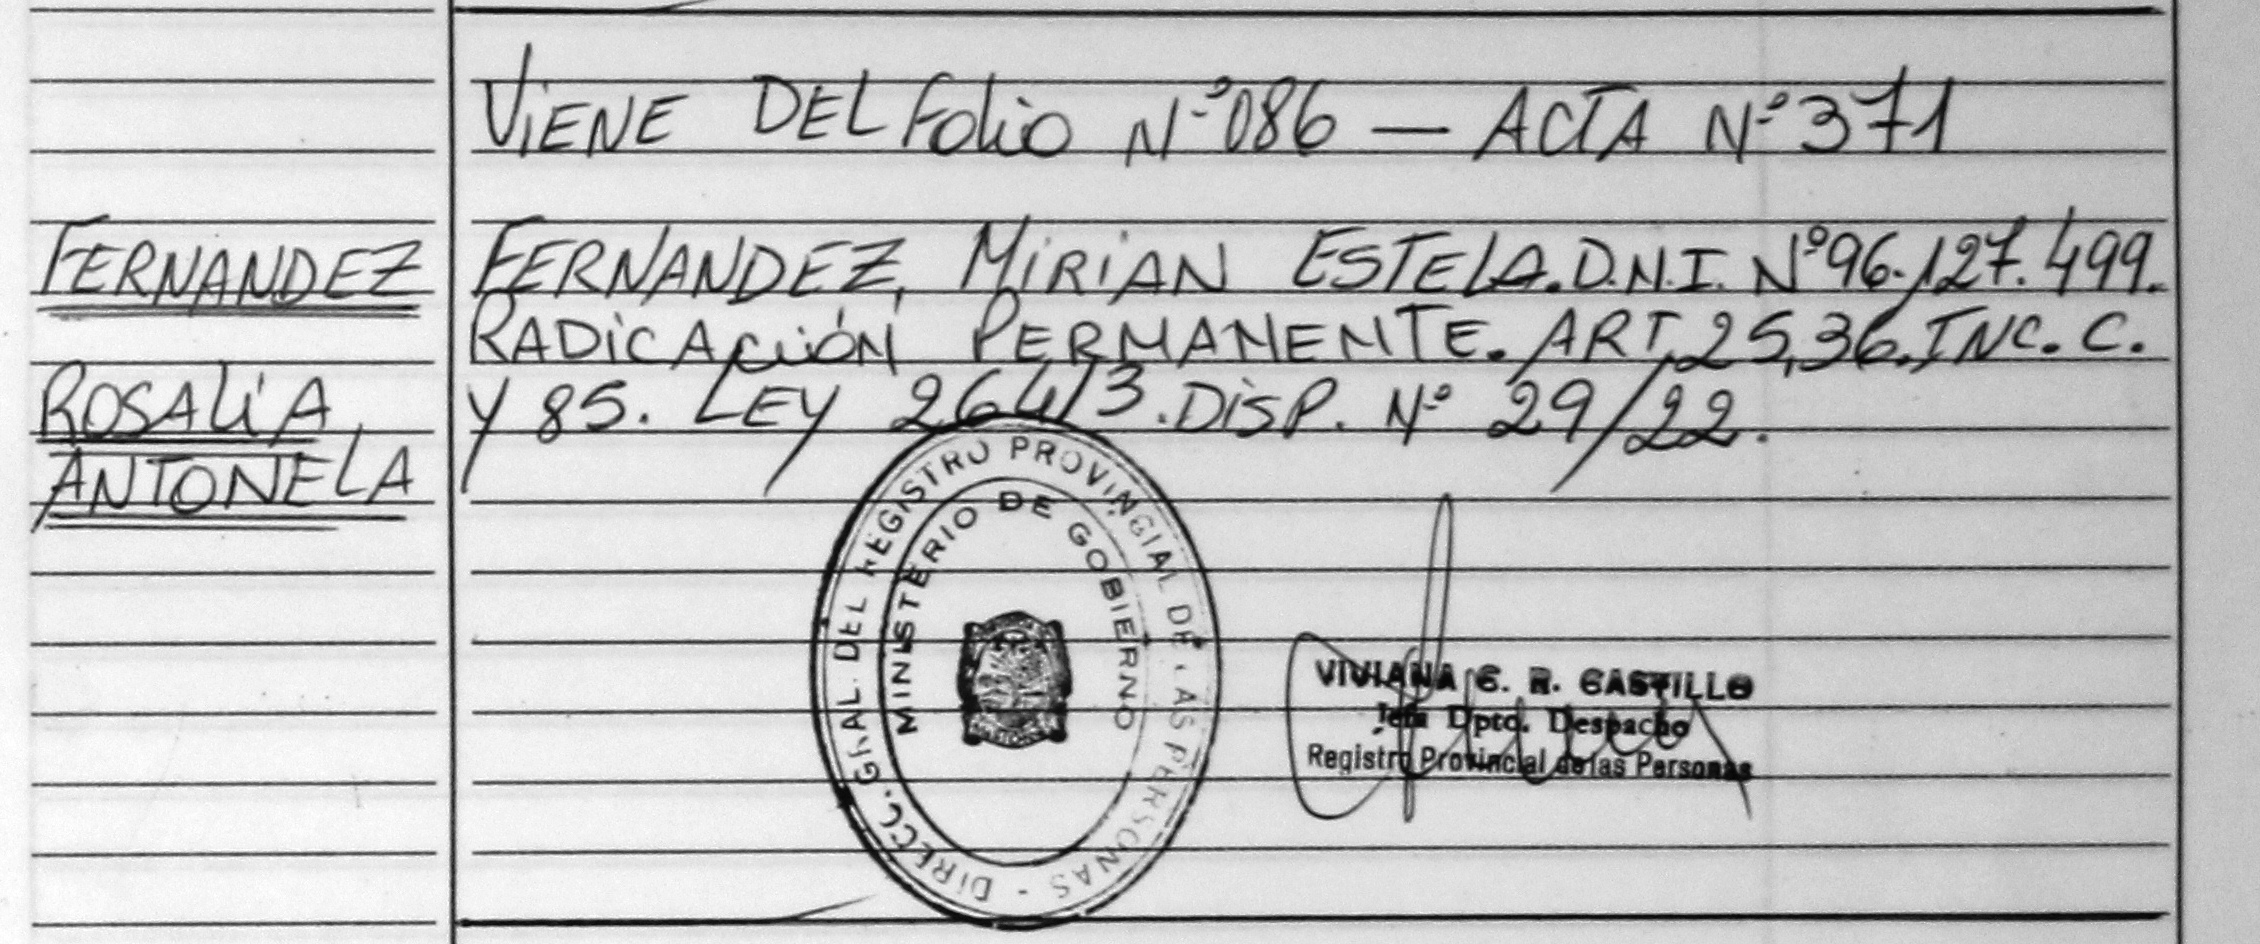 VIENE DEL FOLIO Nº 086 — ACTA Nº 371
FERNANDEZ
ROSALÍA
ANTONELA
FERNANDEZ, MIRIAN ESTELA. D.N.I. Nº 96.127.499.
RADICACIÓN PERMANENTE. ART. 25,36. INC. C.
Y 85. LEY 26413. DISP. Nº 29/22.
DIRECC. GRAL. DEL REGISTRO PROVINCIAL DE LAS PERSONAS -
MINISTERIO DE GOBIERNO
VIVIANA C. R. CASTILLO
Jefa Dpto. Despacho
Registro Provincial de las Personas